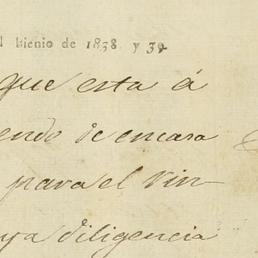 l bienio de 1838 y 39.
que esta á
endo de encasa
para el vin-
ya diligencia